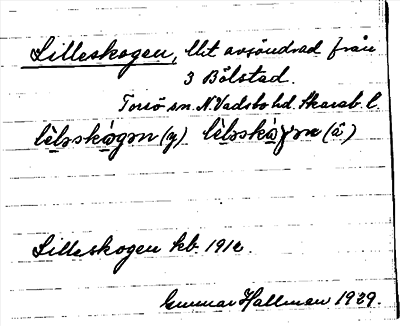 Lilleskogen, lht avsöndrad från
3 Bölstad.
Torsö sn. N. Vadsbo hd. Skarab. l.
lèləskógən (y) lèləskóγən (ä)
Lilleskogen kb. 1912.
Gunnar Hallman 1929.